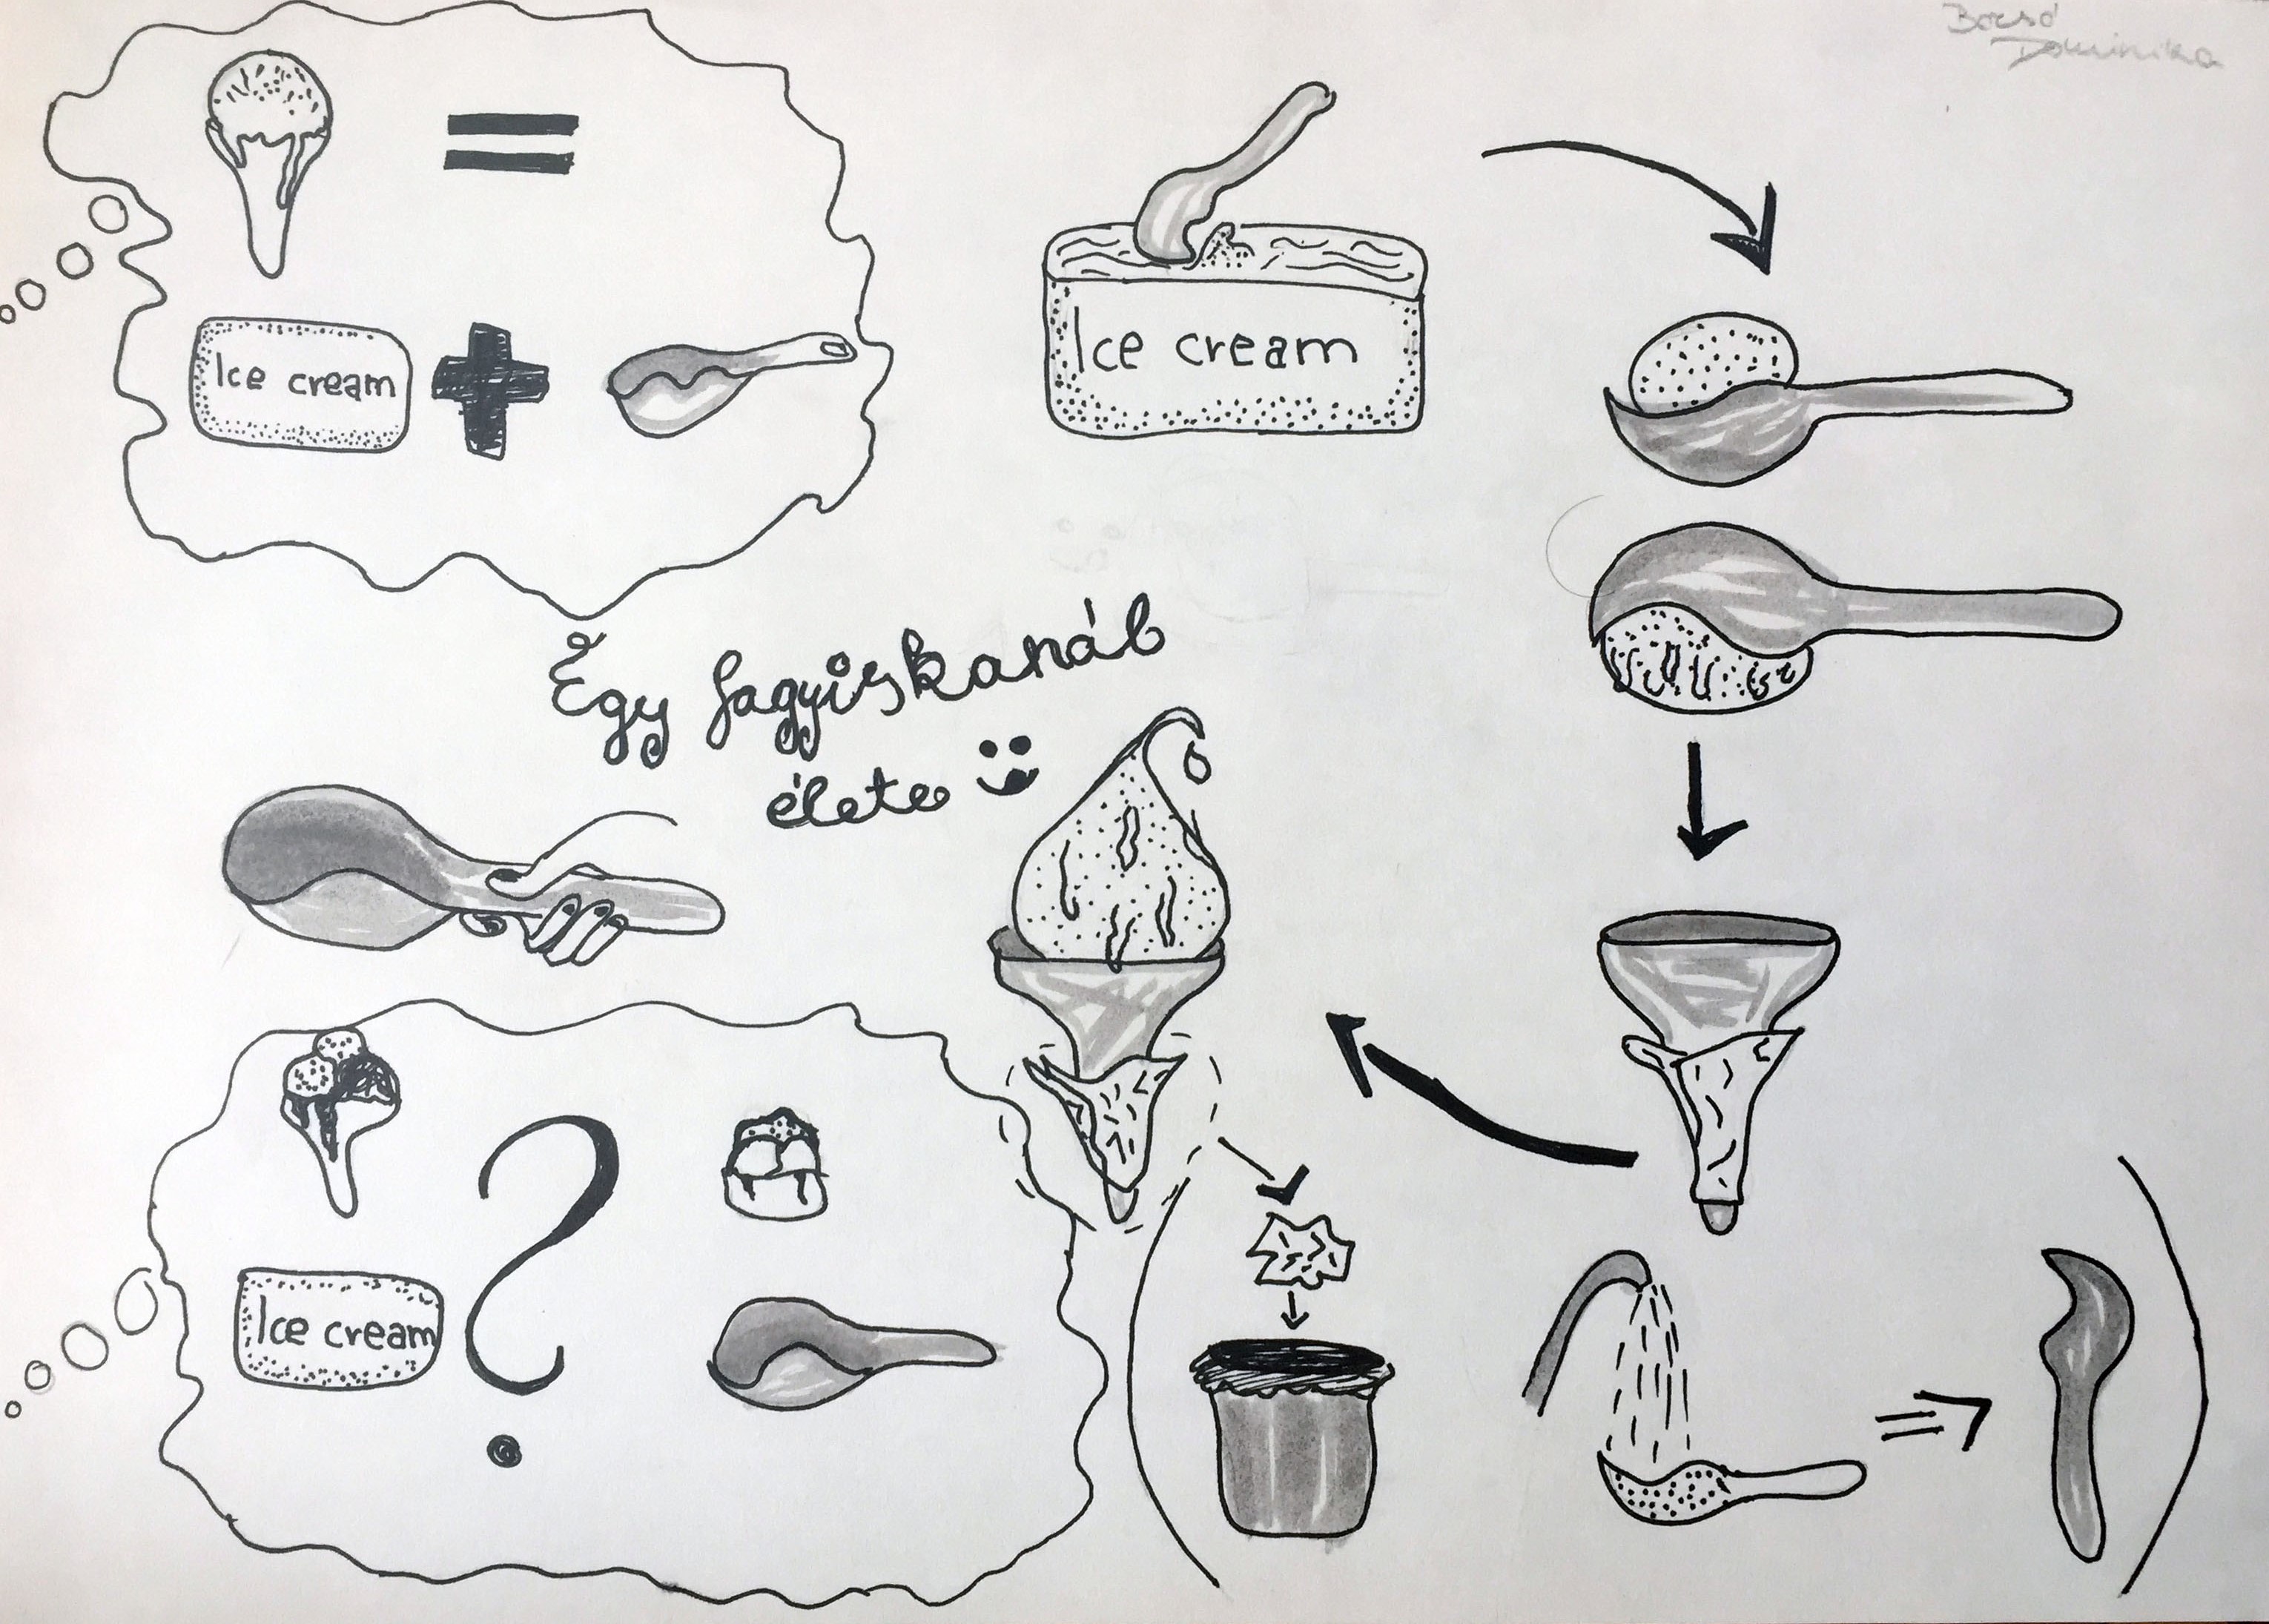 Bocsó
Dominika
Ice cream
Ice cream
Egy fagyiskanál
élete
Ice cream